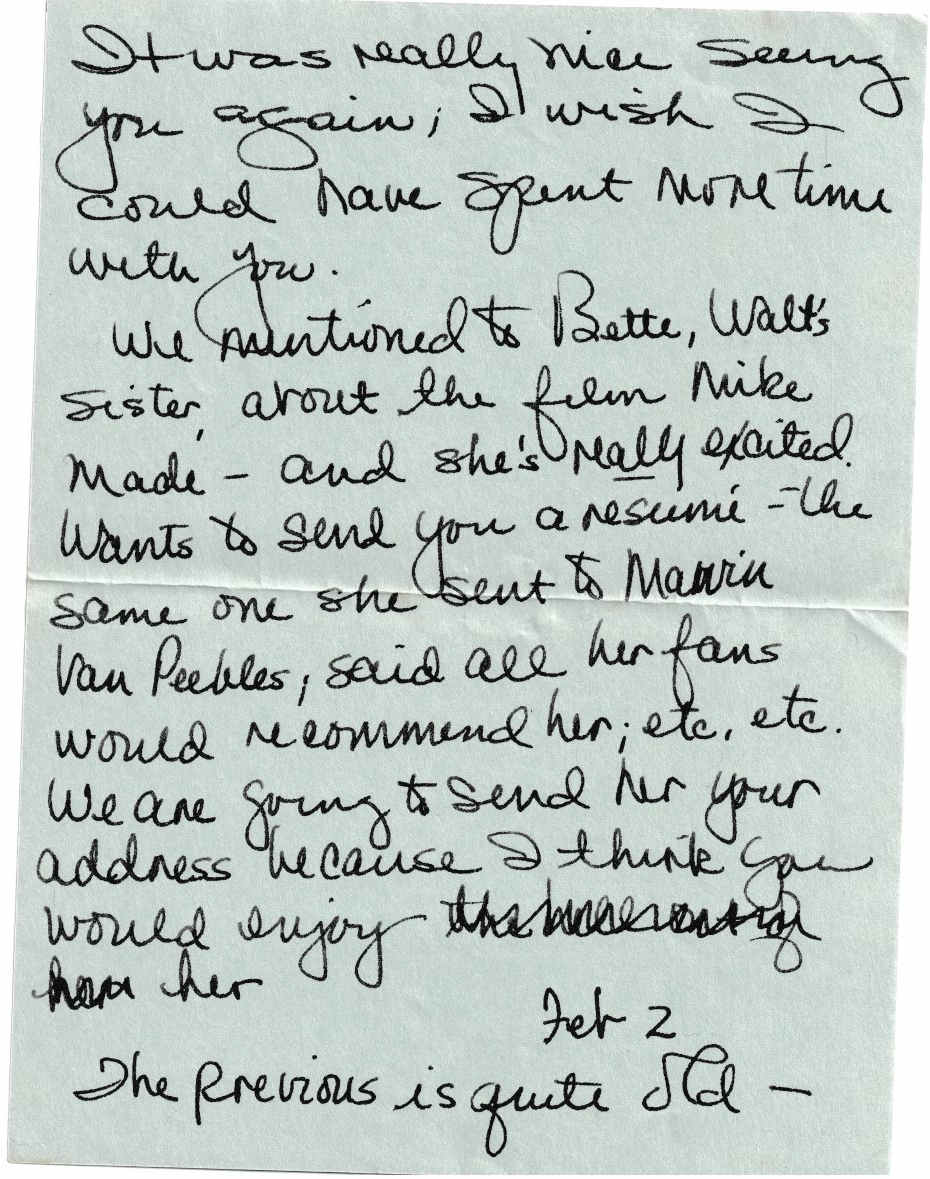 It was really nice seeing
you again; I wish I
could have spent more time
with you.
We mentioned to Bette, Walt's
sister, about the film Mike
made - and she's really excited.
Wants to send you a resumé - the
same one she sent to
Van Peebles; said all her fans
would recommend her; etc, etc.
We are going to send her your
address because I think you
would enjoy
her
Feb 2
The previous is quite old -